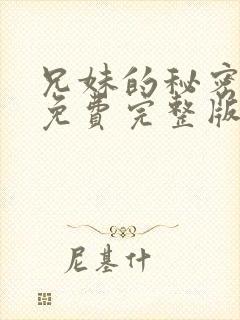 兄妹的秘密
免費完整版
尼基什